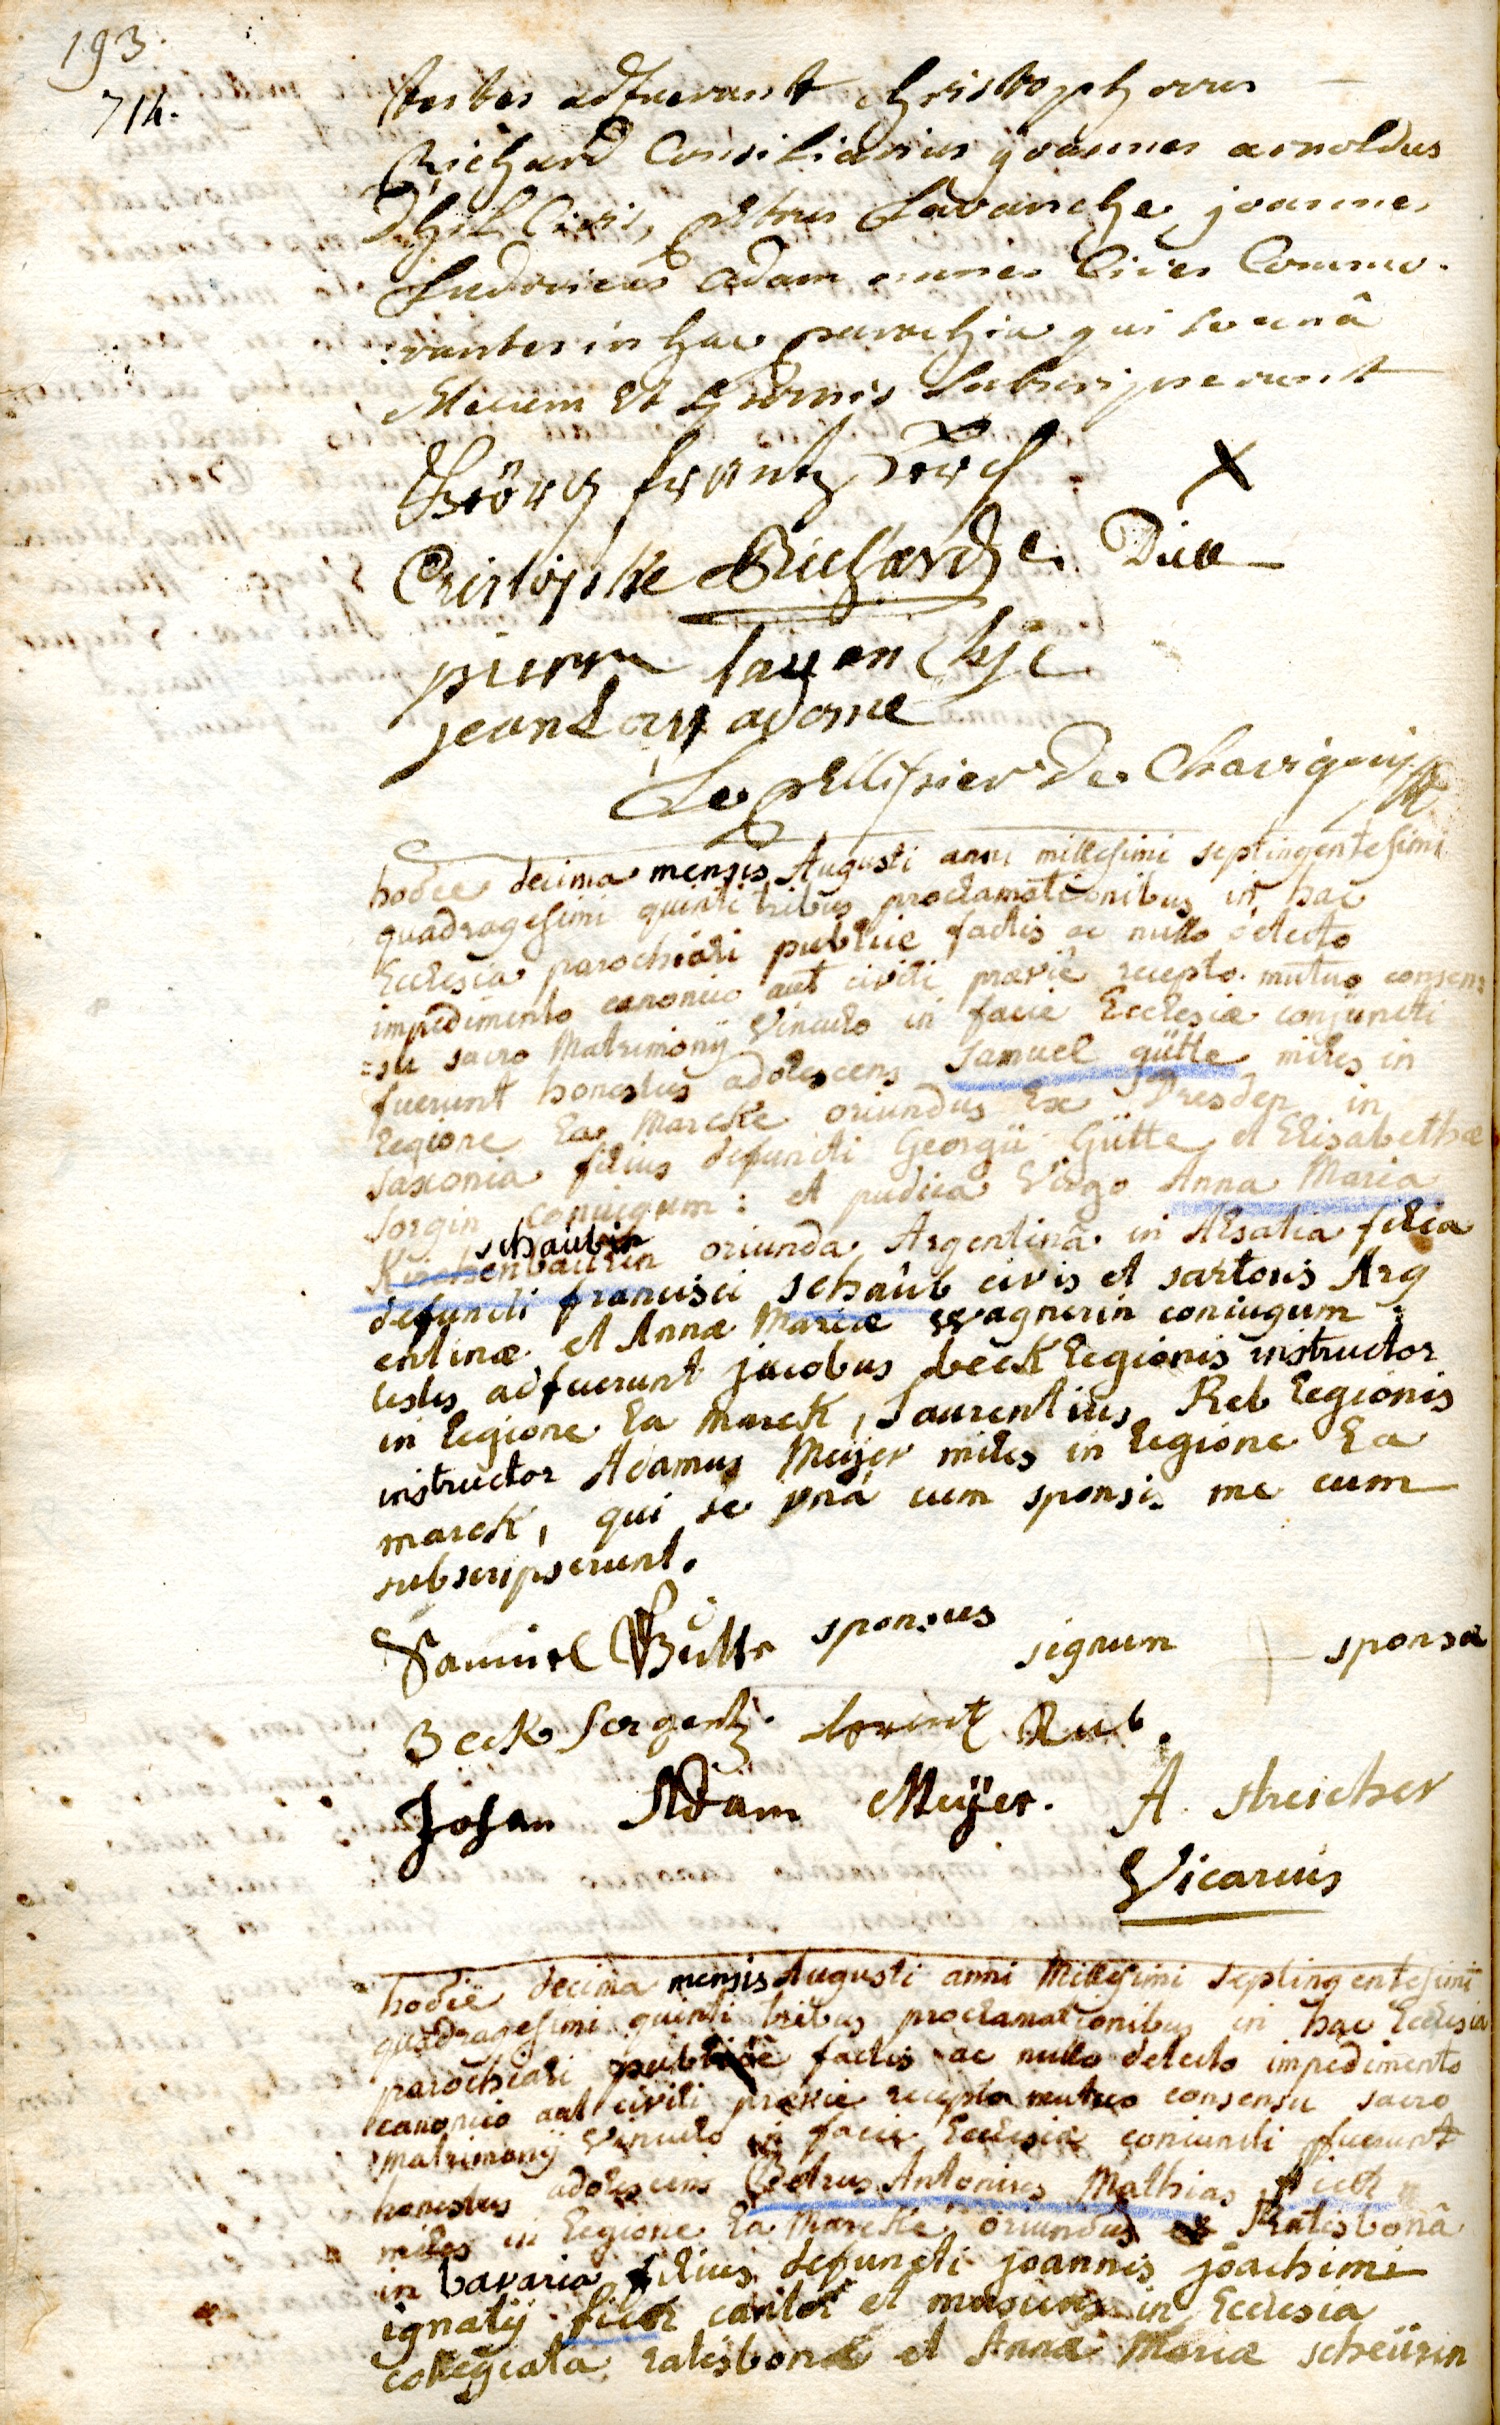 193.
714.
testes adfuerunt christophorus
Richard Consiliarius joannes arnoldus
Civis, petrus Lavanche, joannes
Ludovicus adam omnes Cives Commo-
rantes in hac parochia qui se unâ
Mecum et sponsis subscripserunt
frantz
X
Cristophe Richard
pierre lavanchje
jean Loui adame
Le pellissier De Chavigny
hodie decima mensis Augusti anni millesimi septingentesimi
quadragesimi quinti tribus proclamationibus in hac
Ecclesia parochiali publice factis ac nullo detecto
impedimento canonico aut civili prævie recepto mutuo consen=
=su sacro Matrimonij Vinculo in facie Ecclesiæ conjuncti
fuerunt honestus adolescens Samuel gütte miles in
legione La Marcke oriundus Ex Dresden in
saxonia filius defuncti Georgii Gütte et Elisabethæ
Sorgin conjugum : et pudica Virgo Anna Maria
schaubin
oriunda Argentinâ in Alsatia filia
defuncti francisci schaub civis et sartoris Arg
entinæ et Annæ Mariæ Wagnerin coniugum :
testes adfuerunt jacobus beck legionis instructor
in legione La marck, Laurentius Reb legionis
instructor Adamus Meijer miles in legione La
marck, qui se vnâ cum sponsis me cum
subscripserunt.
Samuel Gütte sponsus signum + sponsæ
Beck Sergent lorentz Rub.
Johan Adam Meÿer. A. streicher
Vicarius
hodie decima mensis Augusti anni Millesimi septingentesimi
quadragesimi quinti tribus proclamationibus in hac Ecclesia
parochiali publice factis ac nullo detecto impedimento
canonico aut civili prævie recepto mutuo consensu sacro
matrimonij vinculo in facie Ecclesiæ coniuncti fuerunt
honestus adolescens Petrus Antonius Mathias
miles in legione La Marcke oriundus ex Ratisbonâ
in bavaria filius defuncti joannis joachimi
ignatij cantor et musicus in Ecclesia
collegiata ratisbonæ et Annæ Mariæ scheürin